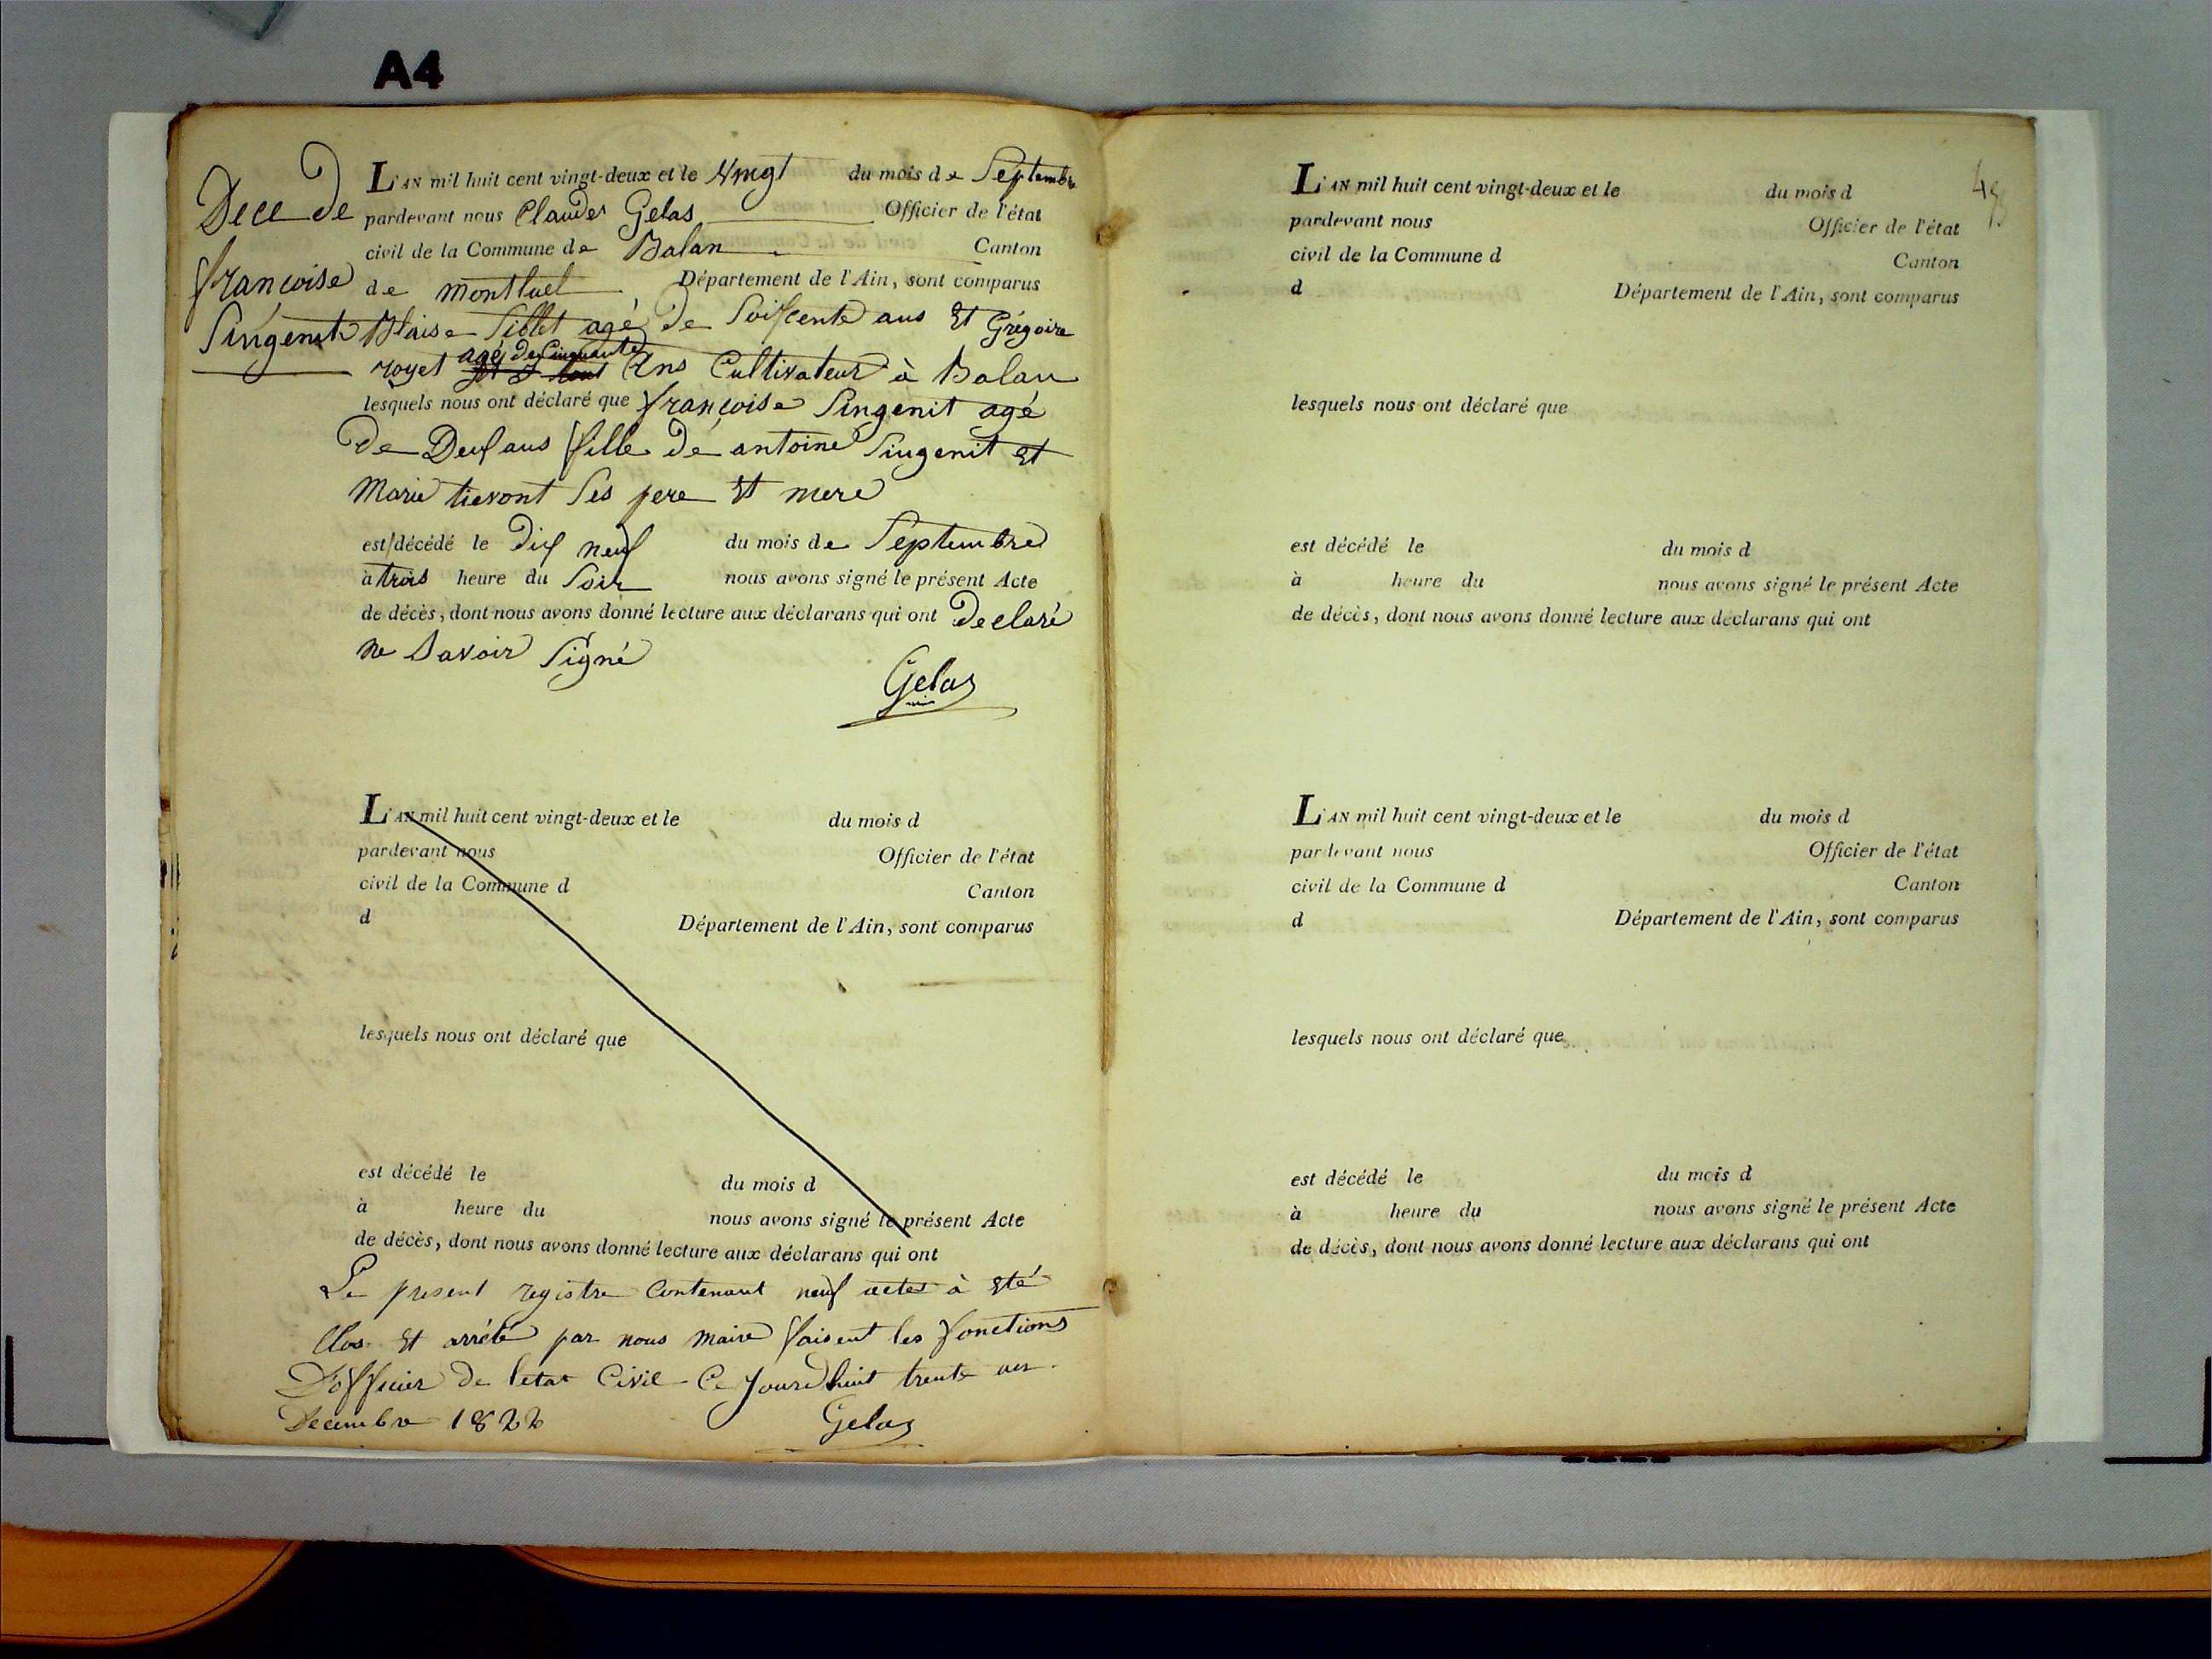 A4
Dece de
françoise
Singenit
L'AN mil huit cent vingt-deux et le Vingt du mois de Septembre
pardevant nous Claudes Gelas Officier de l'état
civil de la Commune de Balan Canton
de montluel Département de l'Ain, sont comparus
Blaise Siblet agé de Soiscente ans Et Grégoire
royet agé de Cinquante Ans Cultivateur à Balan
lesquels nous ont déclaré que françoise Singenit agé
de Deux ans fille de antoine Singenit Et
Marie tievont Ses pere Et mere
est décédé le Dix neuf du mois de Septembre
à trois heure du Soir nous avons signé le présent Acte
de décès, dont nous avons donné lecture aux déclarans qui ont Declaré
ne Savoir Signé
Gelas
L'AN mil huit cent vingt-deux et le du mois d
pardevant nous Officier de l'état
civil de la Commune d Canton
d Département de l'Ain, sont comparus
lesquels nous ont déclaré que
est décédé le du mois d
à heure du nous avons signé le présent Acte
de décès, dont nous avons donné lecture aux déclarans qui ont
Le present registre Contenant neuf actes à Eté
Clos Et arrété par nous Maire faisent les fonctions
D'officier de letat Civil Ce Jourdhuit trente
Decembre 1822
Gelas
L'AN mil huit cent vingt-deux et le du mois d
pardevant nous Officier de l'état
civil de la Commune d Canton
d Département de l'Ain, sont comparus
lesquels nous ont déclaré que
est décédé le du mois d
à heure du nous avons signé le présent Acte
de décès, dont nous avons donné lecture aux déclarans qui ont
L'AN mil huit cent vingt-deux et le du mois d
pardevant nous Officier de l'état
civil de la Commune d Canton
d Département de l'Ain, sont comparus
lesquels nous ont déclaré que
est décédé le du mois d
à heure du nous avons signé le présent Acte
de décès, dont nous avons donné lecture aux déclarans qui ont